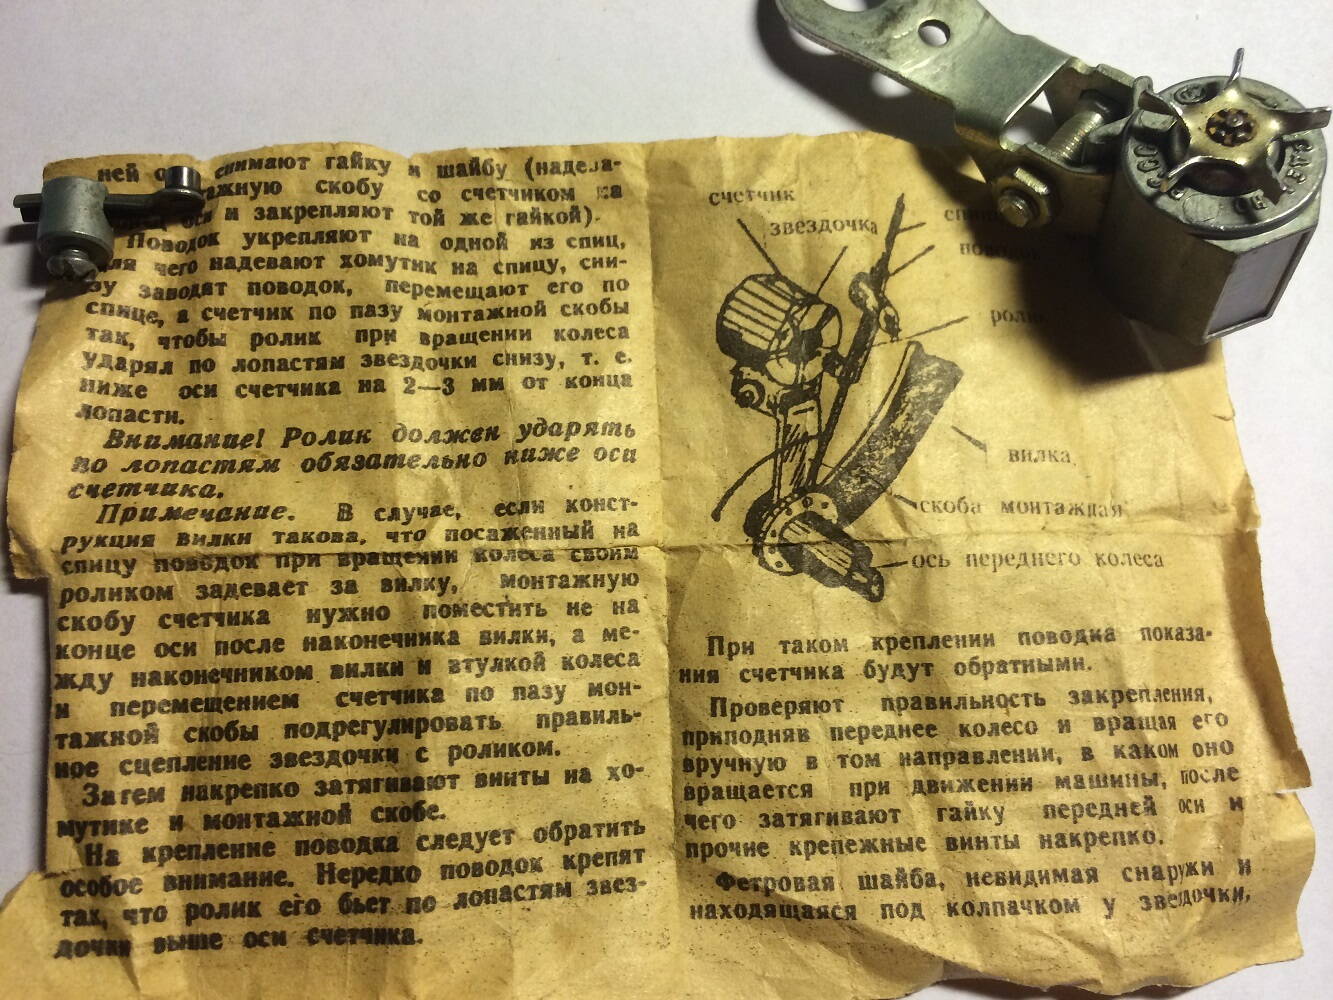 ней снимают гайку и шайбу (надева-
скобу со счетчиком на
оси и закрепляют той же гайкой).
Поводок укрепляют на одной из спиц,
для чего надевают хомутик на спицу, сни-
зу заводят поводок, перемещают его по
спице, а счетчик по пазу монтажной скобы
так, чтобы ролик при вращении колеса
ударял по лопастям звездочки снизу, т. е.
ниже оси счетчика на 2—3 мм от конца
лопасти.
Внимание! Ролик должен ударять
по лопастям обязательно ниже оси
счетчика.
Примечание. В случае, если конст-
рукция вилки такова, что посаженный на
спицу поводок при вращении колеса своим
роликом задевает за вилку, монтажную
скобу счетчика нужно поместить не на
конце оси после наконечника вилки, а ме-
жду наконечником вилки и втулкой колеса
и перемещением счетчика по пазу мон-
тажной скобы подрегулировать правиль-
ное сцепление звездочки с роликом.
Затем накрепко затягивают винты на хо-
мутике и монтажной скобе.
На крепление поводка следует обратить
особое внимание. Нередко поводок крепят
так, что ролик его бьет по лопастям звез-
дочки выше оси счетчика.
счетчик
звездочка
поводок
ролик
вилка
скоба монтажная
ось переднего колеса
При таком креплении поводка показа-
ния счетчика будут обратными.
Проверяют правильность закрепления,
приподняв переднее колесо и вращая его
вручную в том направлении, в каком оно
вращается при движении машины, после
чего затягивают гайку передней оси и
прочие крепежные винты накрепко.
Фетровая шайба, невидимая снаружи и
находящаяся под колпачком у звездочки,